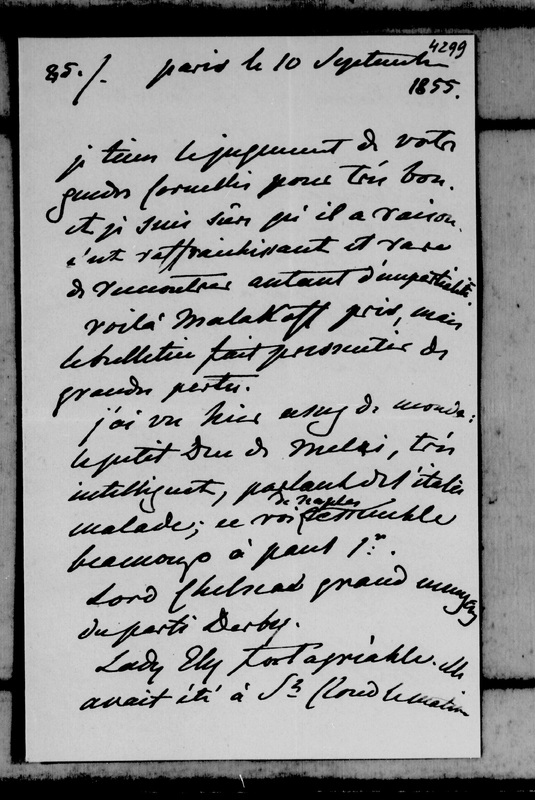 4299
85./. paris le 10 Septembre
1855.
je tiens le jugement de votre
gendre Cornelis pour très bon.
et je suis sûre qu'il a raison.
c'est raffraichissant et rare
de rencontrer autant d'impartialité.
voilà Malakoff pris, mais
le bulletin fait pressentir de
grandes pertes.
j'ai vu hier assez de monde:
le petit Duc de Melzi, très
intelligent, parlant de l'italie
malade; ce roi de Naples ressemble
beaucoup à paul 1er.
Lord Chelsea grand
du parti Derby.
Lady Ely fort agréable. Elle
avait été à St Cloud le matin